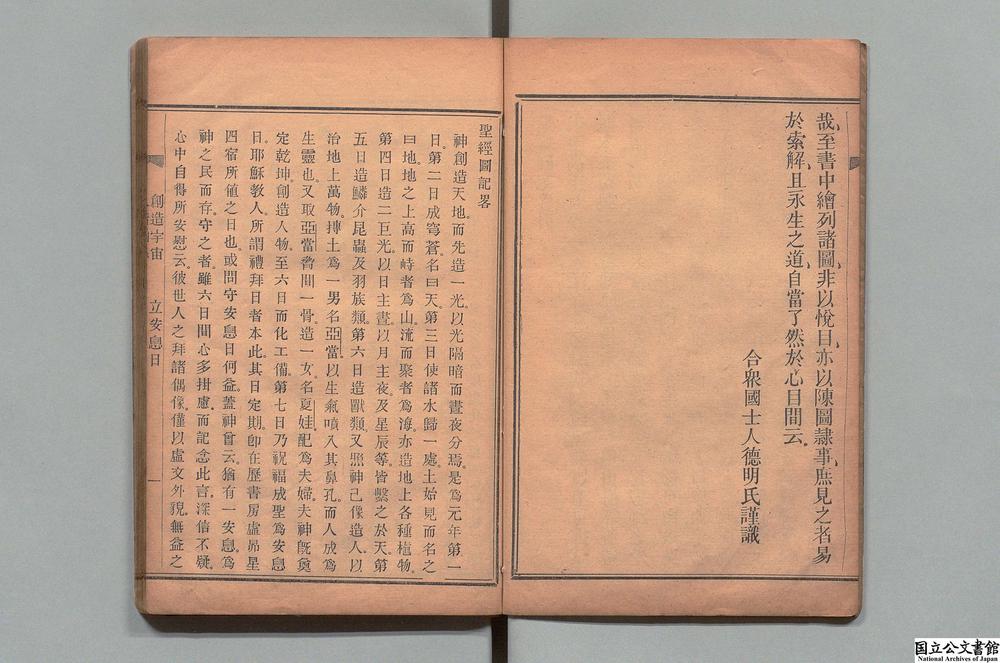 哉、至書中繪列諸圖、非以悅目、亦以陳圖隷事、庶見之者易
於索解、且永生之道、自當了然於心目間云。
合衆國士人德明氏謹識
聖經圖記畧
神創造天地、而先造一光、以光隔暗、而晝夜分焉。是爲元年第一
日。第二日成穹蒼、名曰天。第三日使諸水歸一處、土始見而名之
曰地、地之上高而峙者爲山、流而聚者爲海、亦造地上各種植物。
第四日造二巨光、以日主晝、以月主夜、及星辰等皆繫之於天。第
五日造鱗介昆蟲及羽族類。第六日造獸類、又照神己像造人、以
治地上萬物。摶土爲一男名亞當、以生氣噴入其鼻孔、而人成爲
生靈也。又取亞當脅間一骨、造一女、名夏娃、配爲夫婦。夫神旣奠
定乾坤、創造人物、至六日而化工備。第七日乃祝福成聖爲安息
日。耶穌教人所謂禮拜日者本此。其日定期、卽在歷書房虛昴星
四宿所値之日也。或問守安息日何益。蓋神曾云、猶有一安息、爲
神之民而存。守之者、雖六日間心多掛慮、而記念此言、深信不疑、
心中自得所安慰云。彼世人之拜諸偶像、僅以虛文外貌無益之
創造宇宙　立安息日　一
國立公文書館
National Archives of Japan